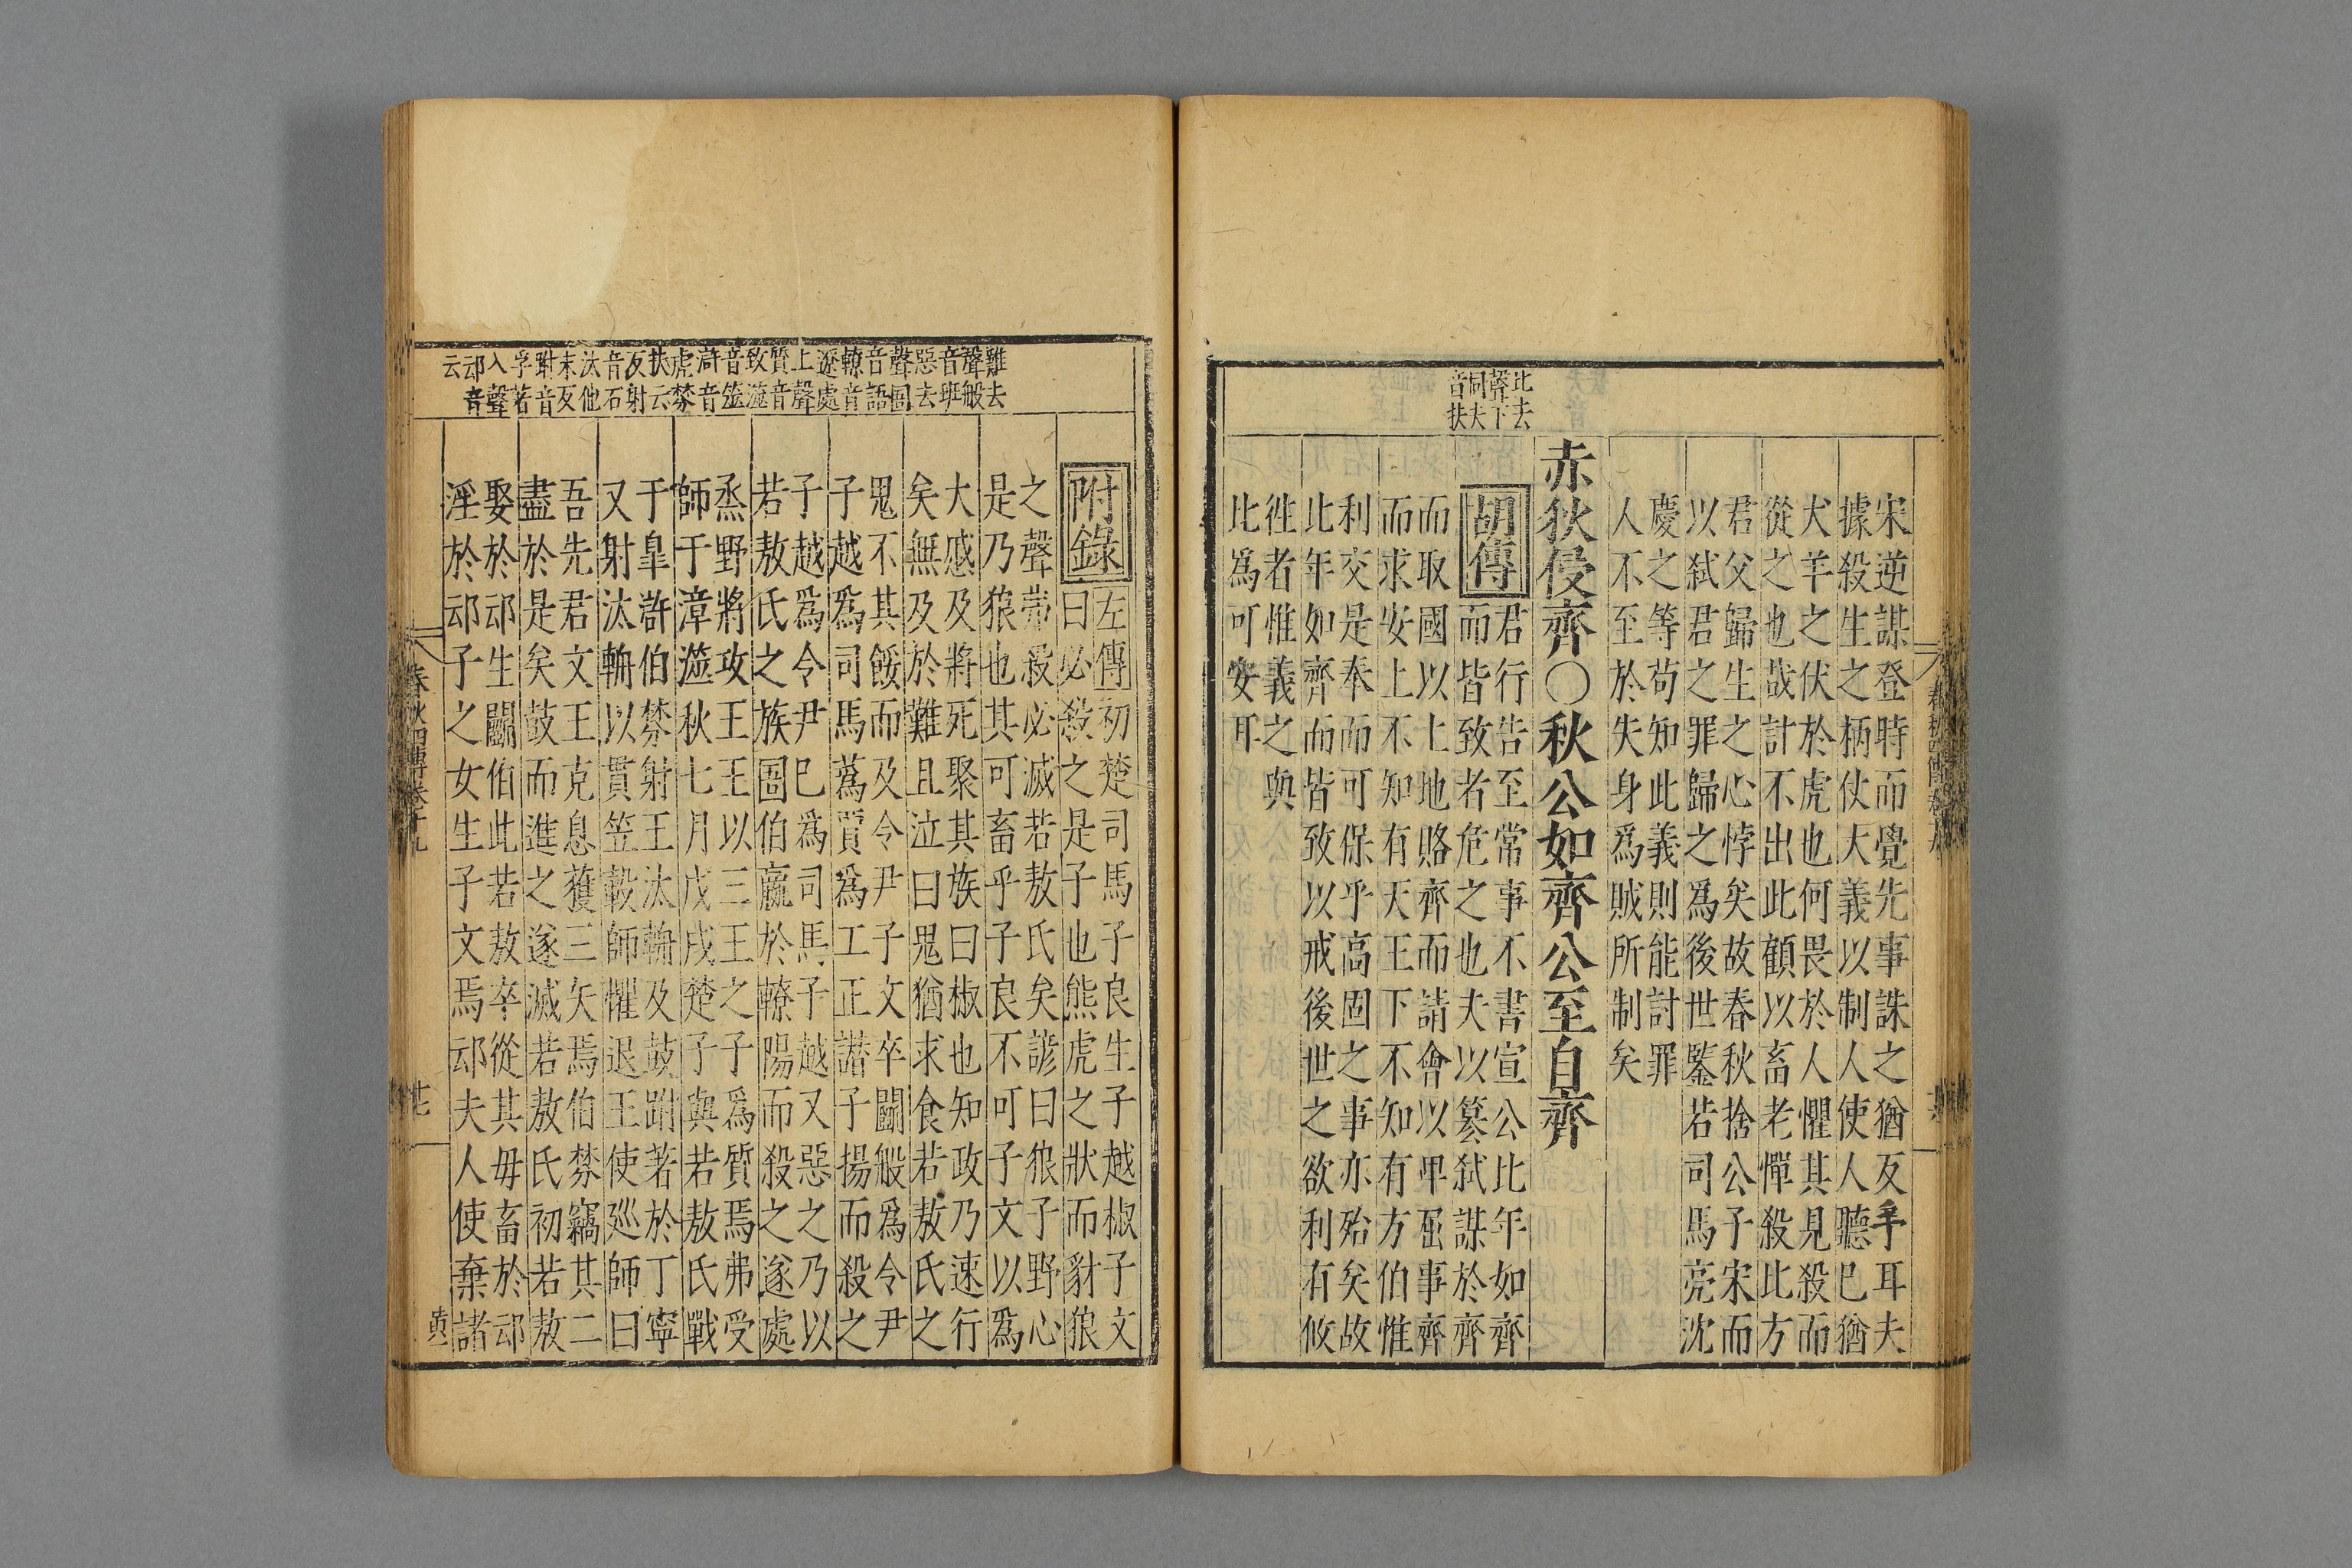 比去
聲下
同夫
音扶
宋逆謀登時而覺先事誅之猶反手耳夫
據殺生之柄仗大義以制人使人聽巳猶
犬羊之伏於虎也何畏於人懼其見殺而
從之也哉計不出此顧以畜老憚殺比方
君父歸生之心悖矣故春秋捨公子宋而
以弑君之罪歸之爲後世鑒若司馬亮沈
慶之等苟知此義則能討罪
人不至於失身爲賊所制矣
赤狄侵齊〇秋公如齊公至自齊
胡傳
君行告至常事不書宣公比年如齊
而皆致者危之也夫以簒弑謀於齊
而取國以土地賂齊而請會以卑屈事齊
而求安上不知有天王下不知有方伯惟
利交是奉而可保乎高固之事亦殆矣故
比年如齊而皆致以戒後世之欲利有攸
徃者惟義之與
比爲可安耳
難去
聲般
音班
惡去
聲圄
音語
轑音
遼處
上聲
質音
致漩
音筮
滸音
虎棼
扶云
反射
音石
汰他
末反
跗音
孚著
入聲
䢵音
云
附錄
左傳
初楚司馬子良生子越椒子文
曰必殺之是子也熊虎之狀而豺狼
之聲弗殺必滅若敖氏矣諺曰狼子野心
是乃狼也其可畜乎子良不可子文以爲
大慼及將死聚其族曰椒也知政乃速行
矣無及於難且泣曰鬼猶求食若敖氏之
鬼不其餒而及令尹子文卒鬬般爲令尹
子越爲司馬蔿賈爲工正譖子揚而殺之
子越爲令尹巳爲司馬子越又惡之乃以
若敖氏之族圄伯嬴於轑陽而殺之遂處
烝野將攻王王以三王之子爲質焉弗受
師于漳澨秋七月戊戌楚子與若敖氏戰
于臯滸伯棼射王汰輈及鼓跗著於丁寧
又射汰輈以貫笠轂師懼退王使廵師曰
吾先君文王克息獲三矢焉伯棼竊其二
盡於是矣鼓而進之遂滅若敖氏初若敖
娶於䢵生鬬伯比若敖卒從其毋畜於䢵
淫於䢵子之女生子文焉䢵夫人使棄諸